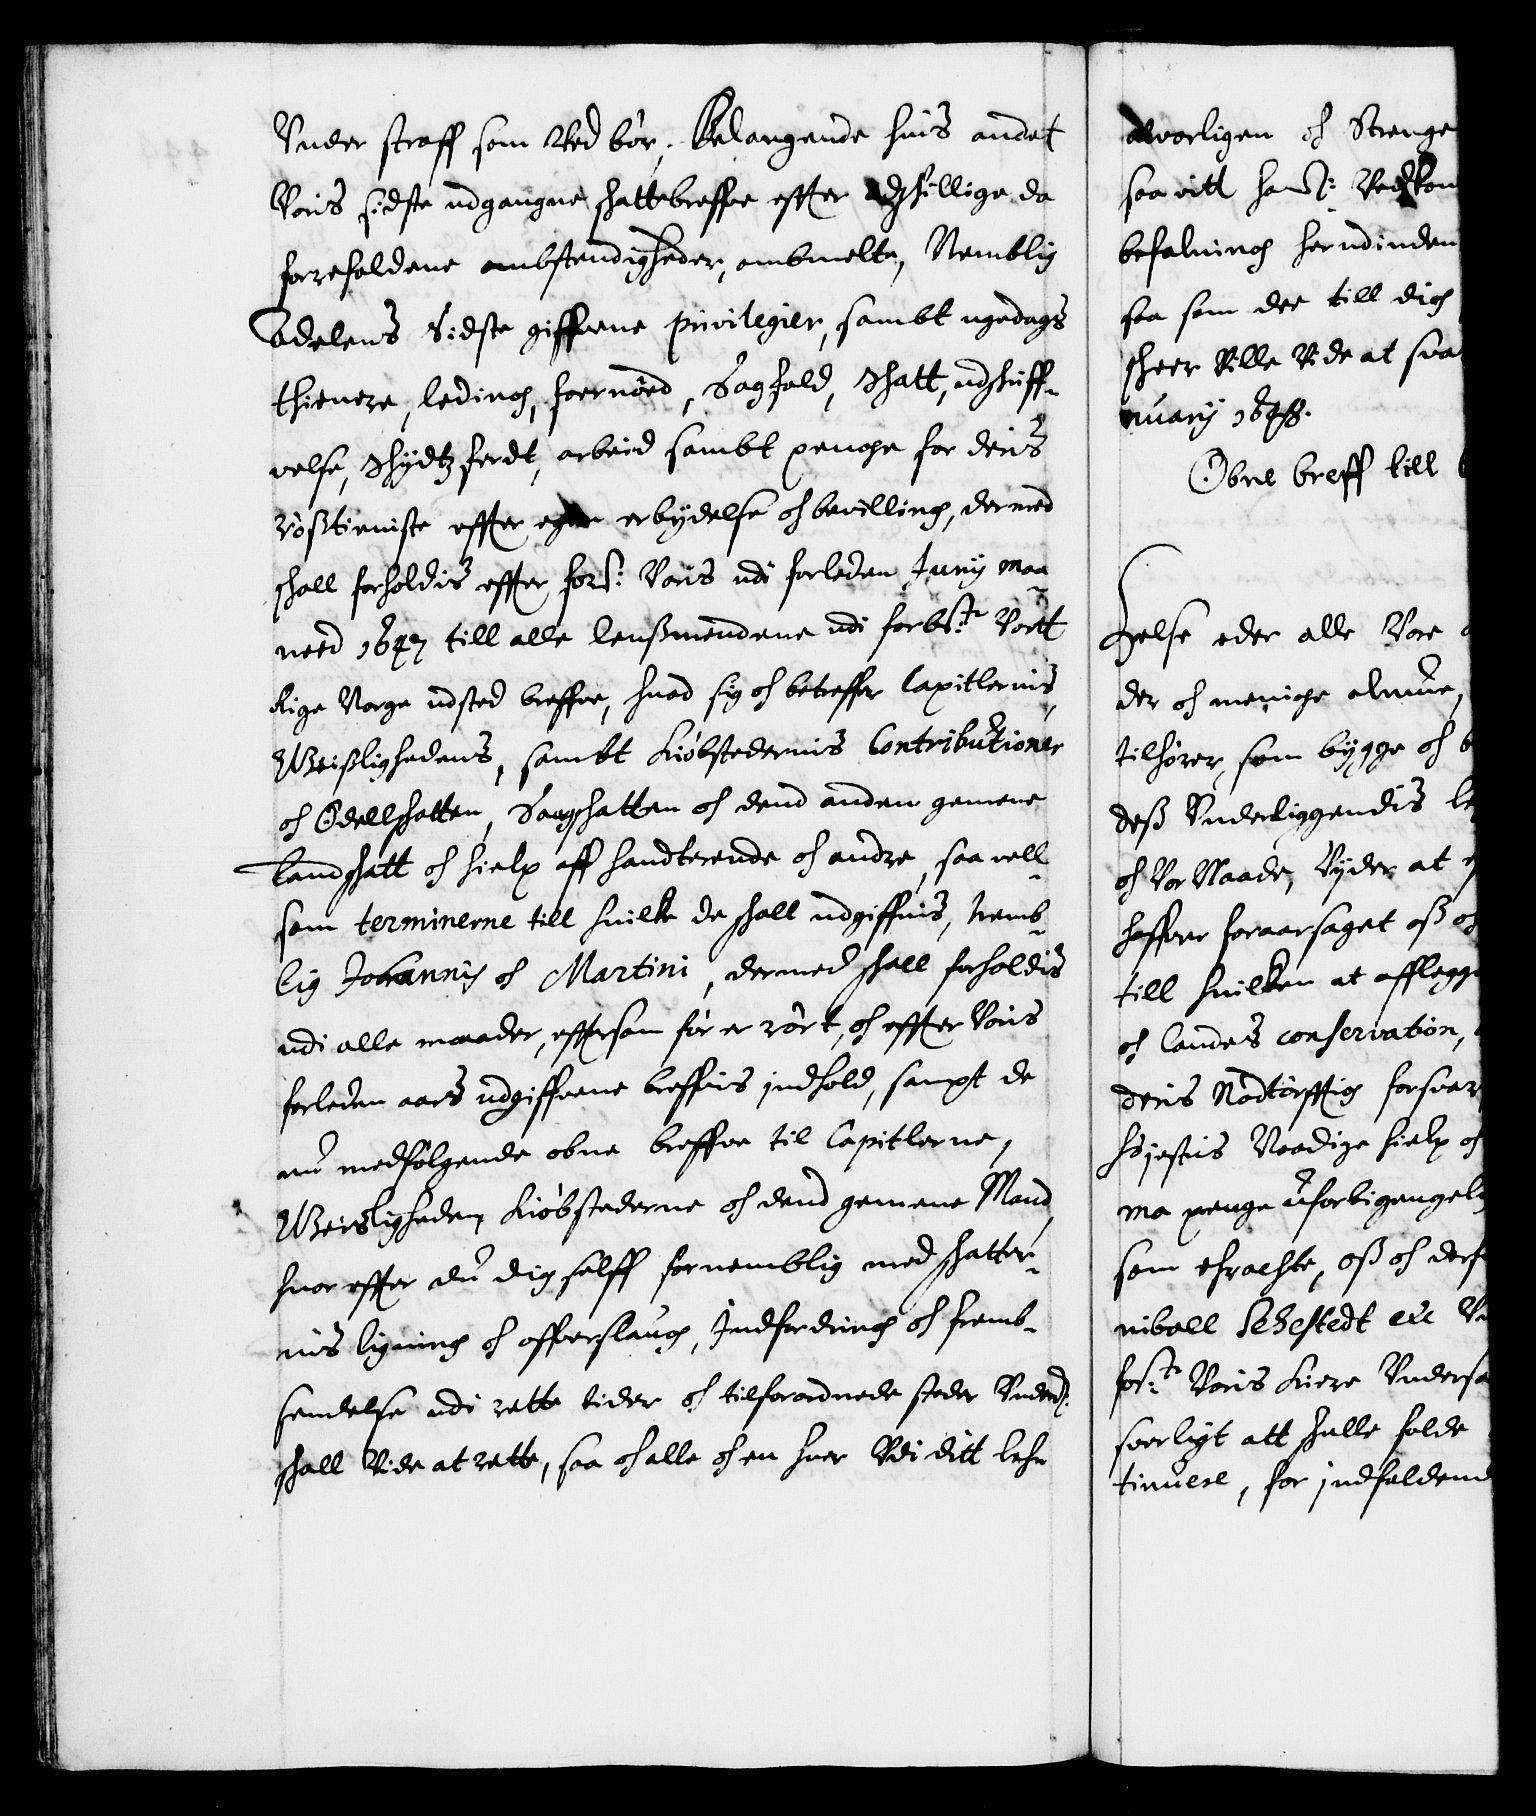 Vnder straff som Ved bør, Belangende huis andet
Voris sidste udgangne skattebreffue effter adskillige da
forrefaldene ombstendigheder, ombmelte, Nemblig
Adelens Sidste giffuene privilegier, sambt ugedags
thienere, leding, foernöed, Sagfald, Skatt, udskuff-
velse, Skydtzferdt, arbeid sambt penge for deris
roßtieniste effter egen erbydelse oc bevilling, dermed
skall forholdis effter fors: Voris udi forleden Junij maa-
ned 1647 till alle lenßmendene udi forbste Vortt
Rige Norge udsted breffue, huad sig oc betreffer Capitlernis,
Geistlighedens, sambt Kiöbstedernis Contributioner
oc Odellskatten, Saugskatten oc dend anden gemene
landskatt oc hielp aff handterende oc andre, saa vell
som terminerne till huilke de skall udgiffuis, nemb-
lig Johannis oc Martini, dermed skall forholdis
udi alle maader, effersom før er rørt, oc effter Voris
forleden aars udgiffuene breffuis indhold, sampt de
nu medfølgende obne breffue til Capitlerne,
Geistligheden, Kiöbstederne oc dend gemene Mand,
huor effter du dig selff fornemblig med skatter-
nis ligning oc offuerslaug, Indfordring oc fremb-
sendelse udi rette tider oc tilforordnede steder Vnderd:
skall Vide at rette, saa oc alle oc en huer Vdi ditt lehn
alvorligen oc Strenge
saa vitt hans: Vedkom
befalning herudinden
saa som det till dig
skeer Ville Vide at sva
nuarij 1648.
Obne breff till
Helse eder alle Vore
der oc menige almue,
tilhører, som bygge oc b
deß Vnderliggendis le
oc Vor Naade, Vyder at
haffuer foraarsaget oß oc
till huilken at afflegge
oc landes conservation,
deris Nödtørfftig forsvar
högstis Naadige hielp oc
ma penge uforbigengel
som erachte, oß oc derfor
niball Sehestedt etc
forste Voris kiere Vndersa
sverligt att skulle falde
tinuere, for indfaldend